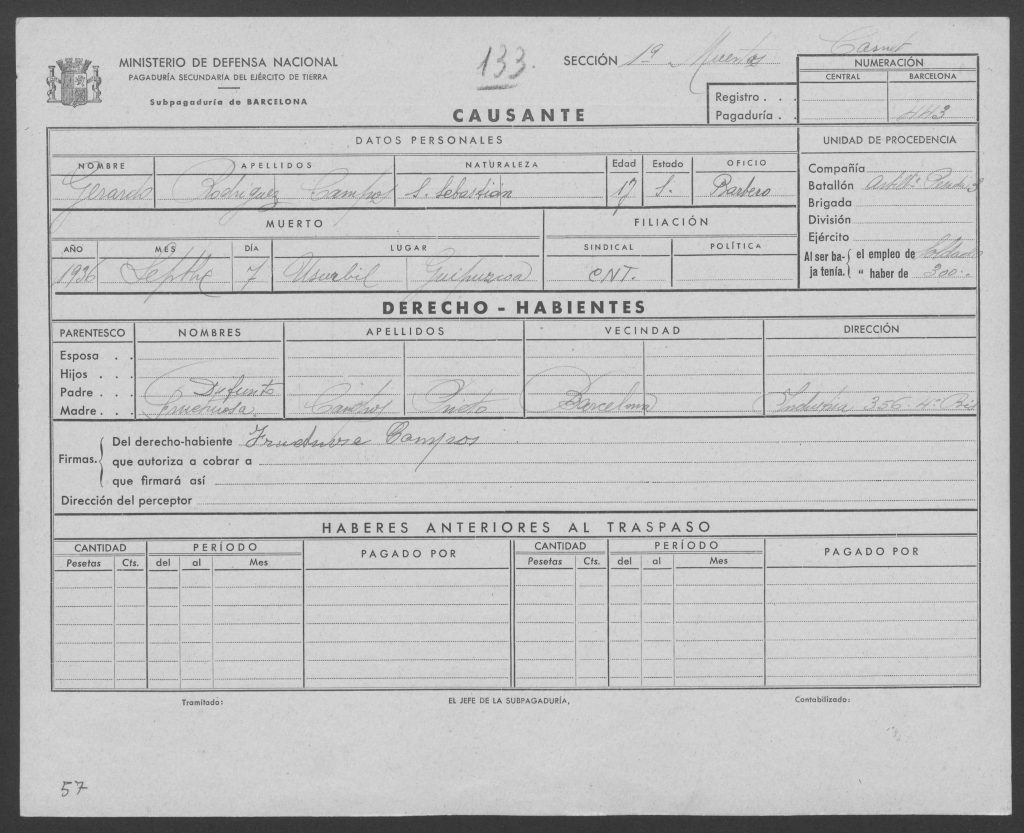 MINISTERIO DE DEFENSA NACIONAL
PAGADURÍA SECUNDARIA DEL EJÉRCITO DE TIERRA
Subpagaduría de BARCELONA
133.
SECCIÓN 1ª Muertos
Carnet
NUMERACIÓN
CENTRAL BARCELONA
Registro . . .
Pagaduría . . 443
CAUSANTE
DATOS PERSONALES
NOMBRE APELLIDOS NATURALEZA Edad Estado OFICIO
Gerardo Rodriguez Campos S. Sebastián 17 S. Barbero
UNIDAD DE PROCEDENCIA
Compañía
Batallón Artillª 3
Brigada
División
Ejército
Al ser baja tenía. el empleo de Soldado
" haber de 300.-
MUERTO FILIACIÓN
AÑO MES DÍA LUGAR SINDICAL POLÍTICA
1936 Septbe 7 Usurbil Guipuzcoa CNT.
DERECHO - HABIENTES
PARENTESCO NOMBRES APELLIDOS VECINDAD DIRECCIÓN
Esposa . .
Hijos . . .
Padre . . . Difunto
Madre . . . Fructuosa Campos Prieto Barcelona Industria 356 4º Bis
Firmas. Del derecho-habiente Fructuosa Campos
que autoriza a cobrar a
que firmará así
Dirección del perceptor
HABERES ANTERIORES AL TRASPASO
CANTIDAD PERÍODO PAGADO POR CANTIDAD PERÍODO PAGADO POR
Pesetas Cts. del al Mes Pesetas Cts. del al Mes
Tramitado: EL JEFE DE LA SUBPAGADURÍA, Contabilizado:
57